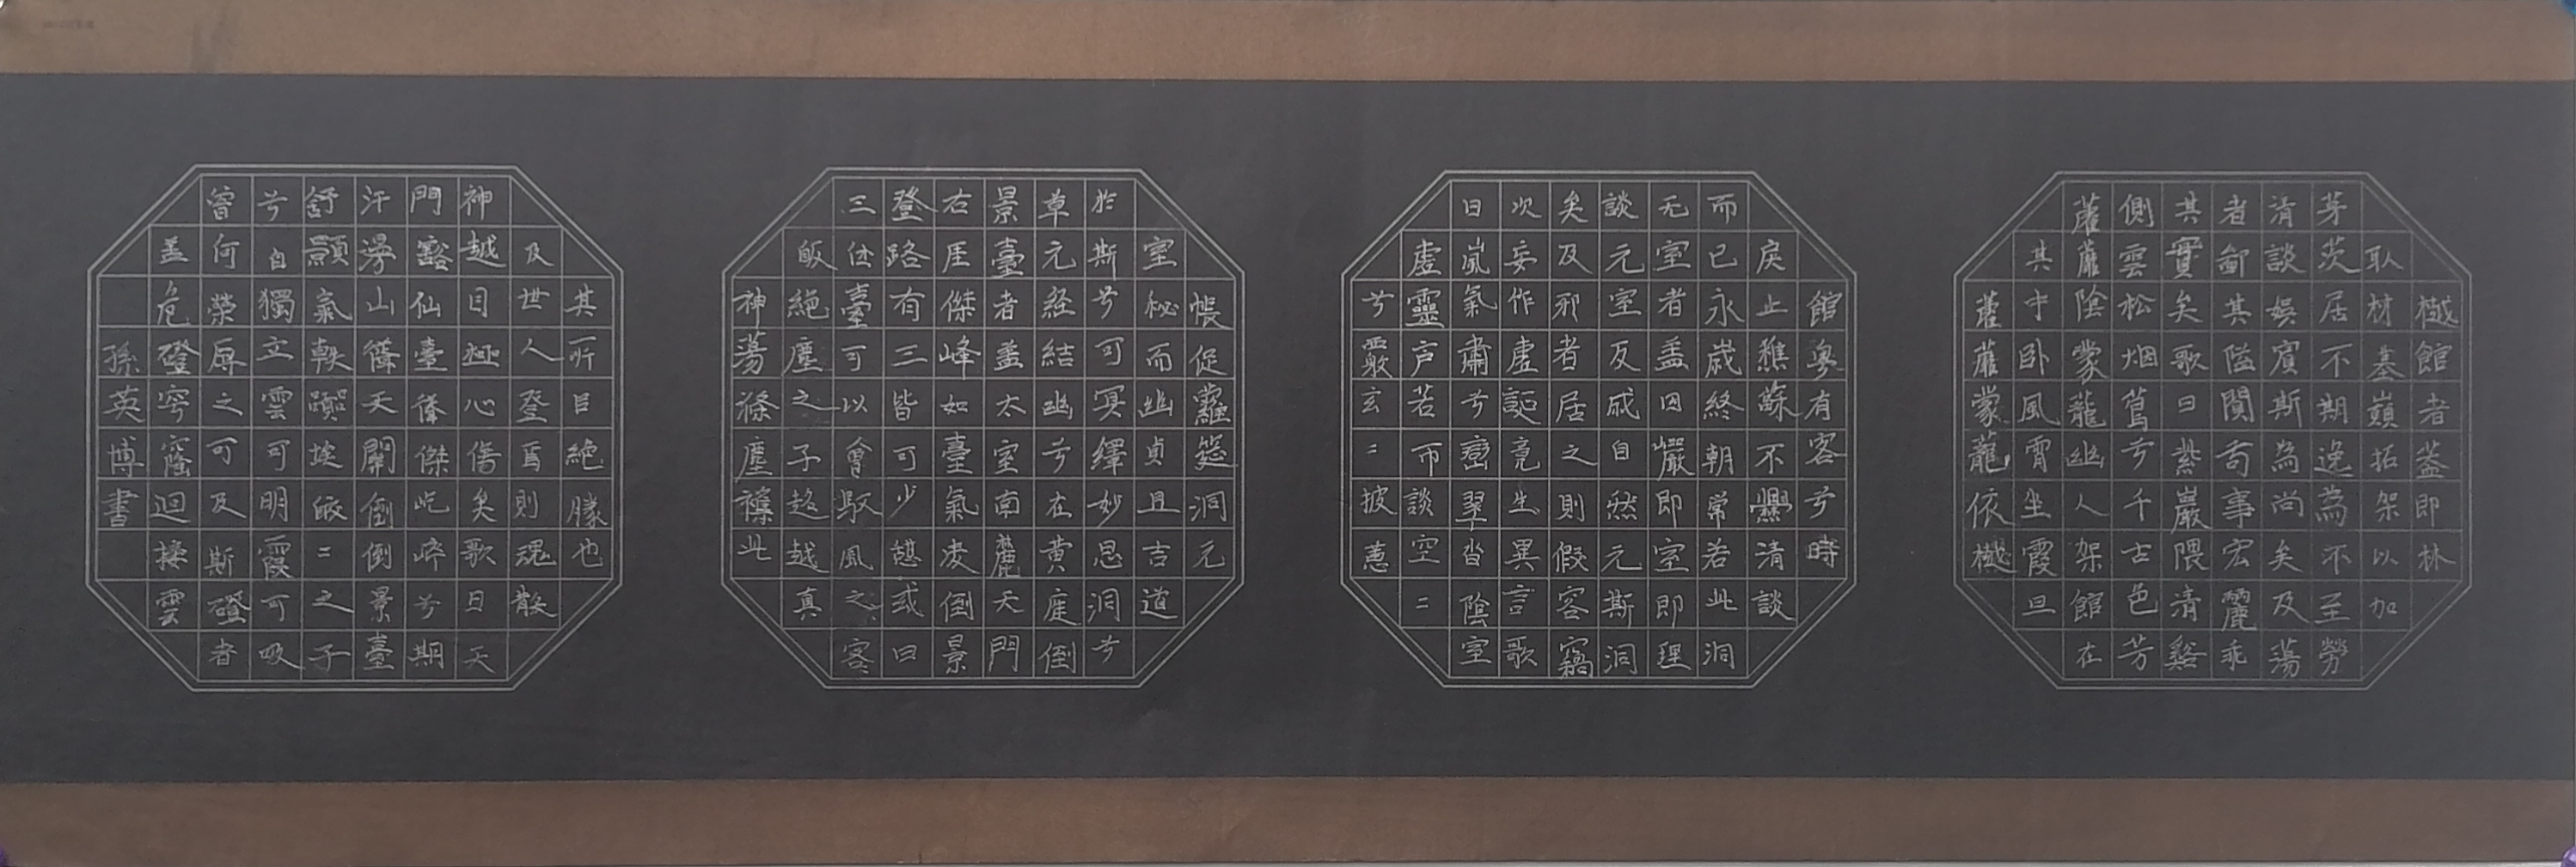 樾館者蓋即林
取材基巔拓架以加
茅茨居不期逸為不至勞
清談娛賓斯為尚矣及蕩
者鄙其隘闃苟事宏麗乖
其實矣歌曰紫巖隈清谿
側雲松烟蔦兮千古邑芳
蘿蘼陰蒙蘢幽人架館在
其中卧風霄坐霞旦
蘿蘼蒙蘢依樾
館粤有客兮時
戾止樵蘇不爨清談
而已永歲終朝常若此洞
无室者盖因巖即室即理
談元室反戍自然元斯洞
矣及邪者居之則假容竊
次妄作虛詎竟生異言歌
日嵐氣肅兮巒翠沓陰室
虛靈户若而談空二
兮覈玄二披蕙
帳促蘿筵洞元
室秘而幽貞且吉道
於斯兮可冥繹妙思洞兮
草元経結幽兮在黄庭倒
景臺者盖太室南麓天門
右厓傑峰如臺氣凌倒景
登路有三皆可少憩或曰
三仕臺可以會馭風之客
皈絕塵之子超越真
神蕩滌塵襟此
其所目絕勝也
及世人登焉則魂散
神越目極心傷矣歌曰天
門豁仙臺儜傑屹崪兮期
汗漫山簳天闢倒倒景臺
舒顥氣軼囂埃皈二之子
兮自獨立雲可明霞可吸
曾何榮辱之可及斯磴者
盖危磴穹窿迴接雲
孫英博書